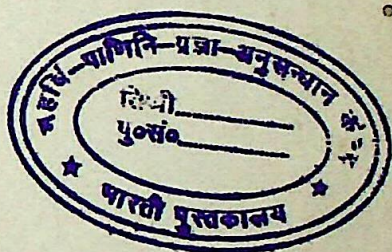 महर्षि-पाणिनि-प्रज्ञा-अनुसन्धान
पु०सं०
भारती पुस्तकालय